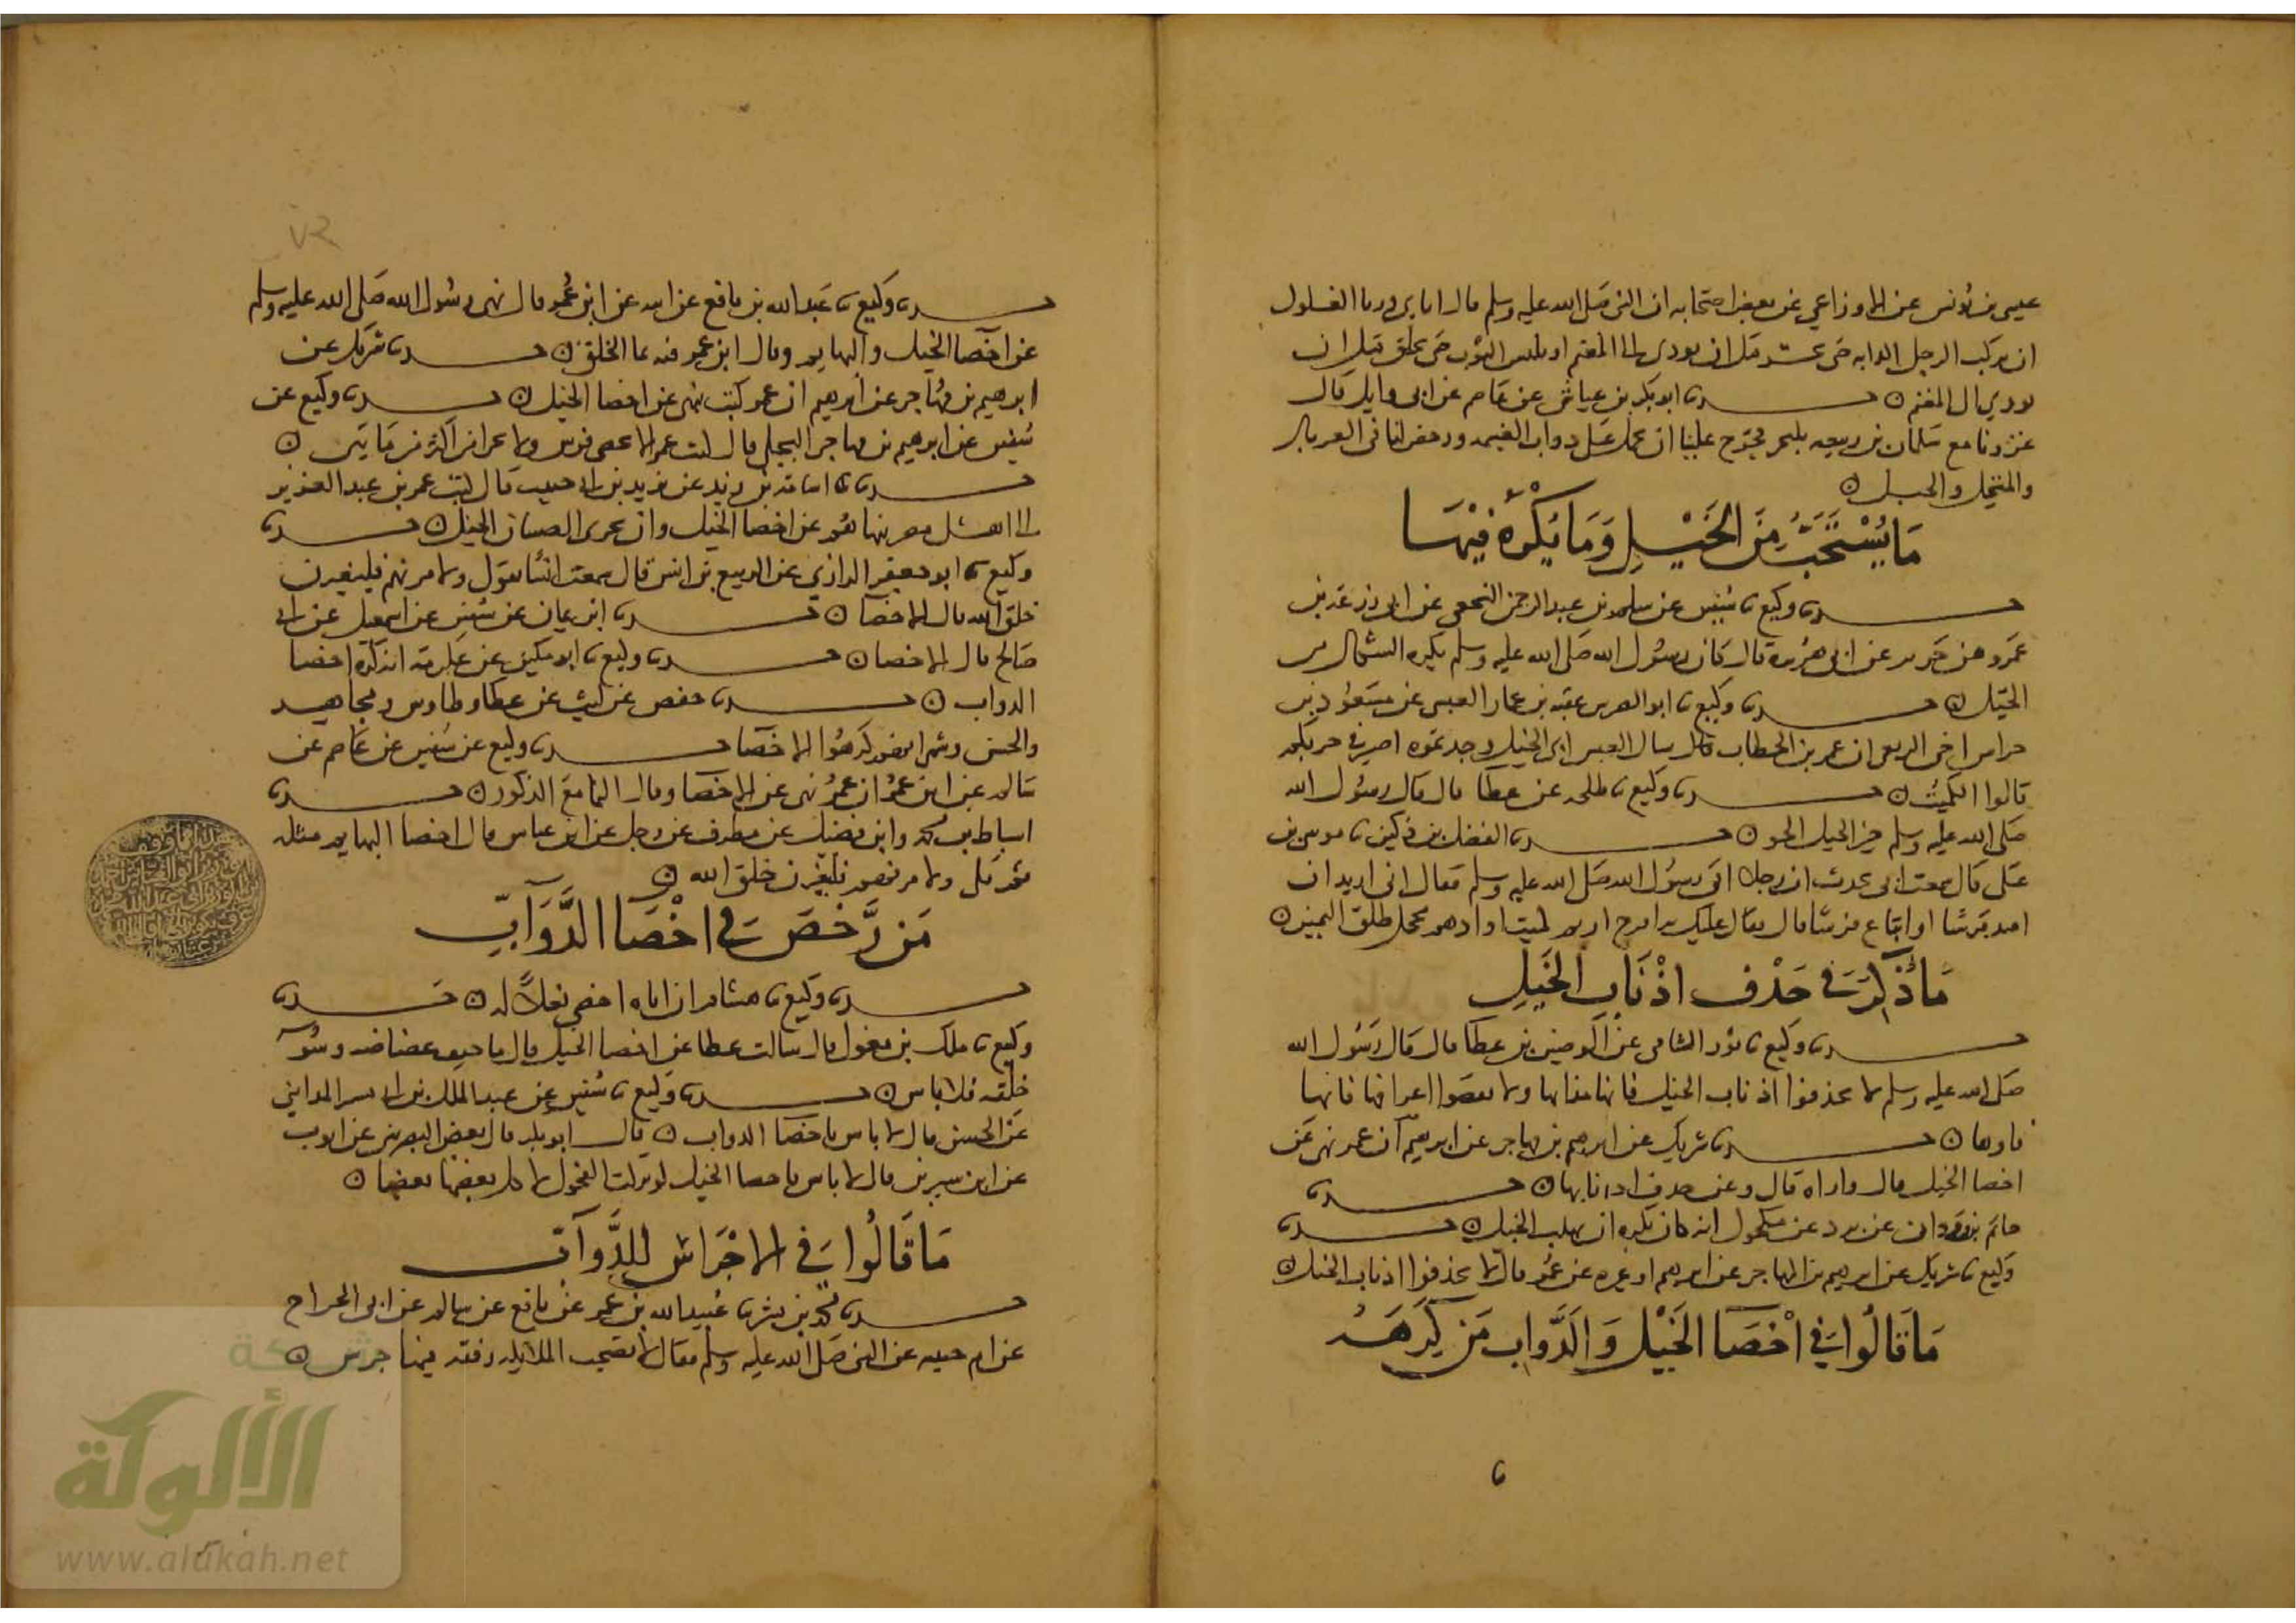 عيسى بن يونس عن الاوزاعي عن بعض اصحابه ان النبي صلى الله عليه وسلم قال اياي وربا الغلول
ان يركب الرجل الدابه حتى قبل ان يودى الى المغنم او يلبس الثوب حتى يخلق قبل ان
يودي الى المغنم ن ابو بكر بن عياش عن عاصم عن ابي وايل قال
غزونا مع سلمان بن ربيعه بلنجر فحرج علينا ان نحمل على دواب الغنيمه ورخص لنا في الغربال
والمنخل والحبل ن
مَا يُسْتَحَبُّ مِنَ الخَيْلِ وَمَا يُكْرَهُ فِيْهَا
وكيع نا سفين عن سلم بن عبد الرحمن النخعي عن ابي زرعه بن
عمرو بن جرير عن ابي هريرة قال كان رسول الله صلى الله عليه وسلم يكره الشكال من
الخيل ن وكيع نا ابو عقبه بن عمار العبسي عن مسعود بن
حراش اخي الربعي ان عمر بن الخطاب سال العبسيين اي الخيل وجدتموه اصبر في حربكم
قالوا الكميت ن وكيع نا طلحه عن عطا قال قال رسول الله
صلى الله عليه وسلم خير الخيل الحو ن الفضل بن دكين نا موسى بن
على قال سمعت ابي يحدث ان رجلا اتى رسول الله صلى الله عليه وسلم فقال اني اريد ان
فرسا او ابتاع فرسا قال فقال عليك به اقرح ارثم كميتا او ادهم محجل طلق اليمين ن
مَا ذُكِرَ في حَذْف اذْنَابِ الخَيلِ
وكيع نا ثور الشامي عن الوضين بن عطا قال قال رسول الله
صلى الله عليه وسلم لا تحذفوا اذناب الخيل فانها مذابها ولا تقصوا اعرافها فانها
ن شريك عن ابراهيم بن مهاجر عن ابرهيم ان عمر نهى عن
اخصا الخيل قال واراه قال وعن حذف اذنابها ن
حاتم بن وردان عن برد عن مكحول انه كان يكره ان يهلب الخيل ن
وكيع نا شريك عن ابرهيم بن المهاجر عن ابرهيم او غيره عن عمر قال لا تحذفوا اذناب الخيل ن
مَا قَالُوا في اخْصَا الخَيْل وَالدَّواب مَن كَرِهَهُ
٧٢
وكيع نا عبد الله بن نافع عن ابيه عن ابن عمر قال نهى رسول الله صلى الله عليه وسلم
عن اخصا الخيل والبهايم وقال ابن عمر فيه نما الخلق ن شريك عن
ابرهيم بن مهاجر عن ابرهيم ان عمر كتب ينهى عن اخصا الخيل ن وكيع عن
سفين عن ابرهيم بن مهاجر البجلي قال كتب عمر الا يخصى فرس ولا
اسامة بن زيد عن يزيد بن ابي حبيب قال كتب عمر بن عبد العزيز
الى اهل مصر ينهاهم عن اخصا الخيل وان يجرى الصبيان الخيل ن
وكيع نا ابو جعفر الرازي عن الربيع بن انس قال سمعت انسا يقول ولامرنهم فليغيرن
خلق الله قال الاخصا ن ابن يمان عن سفين عن اسمعيل عن ابي
صالح قال الاخصا ن وكيع نا ابو مكين عن عكرمة انه كره اخصا
الدواب ن حفص عن ليث عن عطا وطاوس ومجاهد
والحسن وشهر انهم كرهوا الاخصا وكيع عن سفين عن عاصم عن
سالم عن ابن عمر ان عمر نهى عن الاخصا وقال النما مع الذكور ن
اسباط بن محمد وابن فضيل عن مطرف عن رجل عن ابن عباس قال اخصا البهايم مثله
ثم تلى ولامرنهم فليغيرن خلق الله ن
مَن رَخصَ في اخْصَا الدَّوَآبّ
وكيع نا هشام ان اباه اخصى بغلا له ن
وكيع نا ملك بن مغول قال سالت عطا عن اخصا الخيل قال ما خيف عضاضه وسو
خلقه فلا باس ن وكيع نا سفين عن عبد الملك بن ابي بشير المدايني
عن الحسن قال لا باس باخصا الدواب ن قال ابو بكر قال بعض البصريين عن ايوب
عن ابن سيرين قال لا باس باخصا الخيل لو تركت الفحول لاكل بعضها بعضا ن
مَا قَالُوا في الاجْرَاس للدَّوآبّ
محمد بن بشر نا عبيد الله بن عمر عن نافع عن سالم عن ابي الجراح
عن ام حبيبه عن النبي صلى الله عليه وسلم فقال لا تصحب الملايكه رفقه فيها جرس ن
شبكة
الألوكة
www.alukah.net